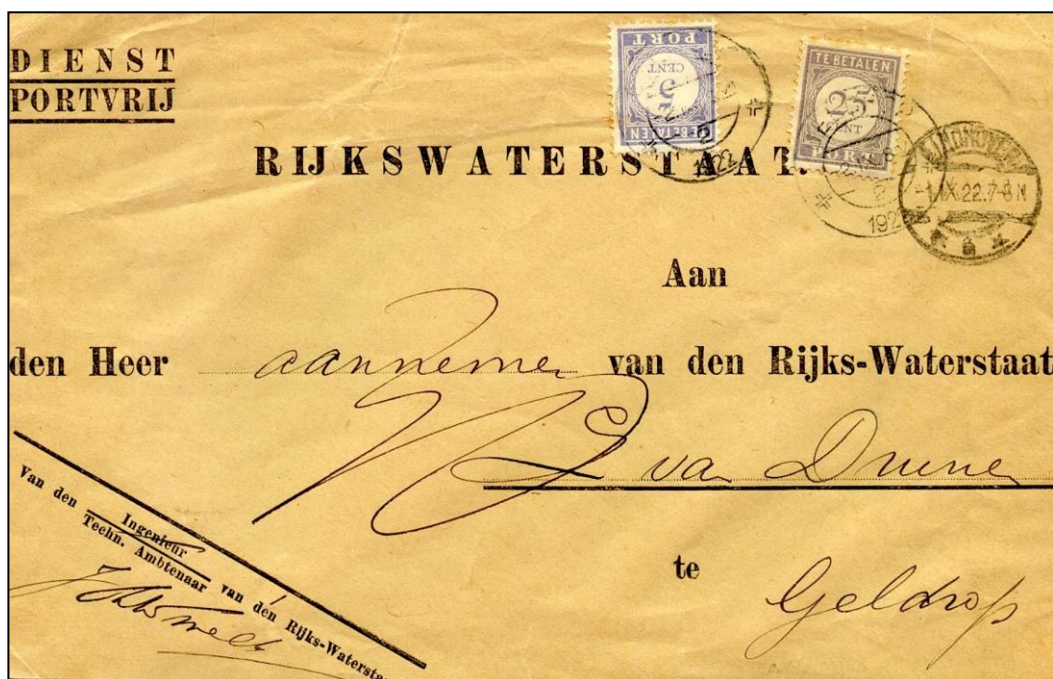 DIENST
PORTVRIJ
TE BETALEN
5
CENT
PORT
TE BETALEN
25
CENT
PORT
1922
-1.IX.22.7-8N
RIJKSWATERSTAAT.
Aan
den Heer aannemer van den Rijks-Waterstaat
van Duinen
te Geldrop
Van den Ingenieur
Techn. Ambtenaar van den Rijks-Watersta